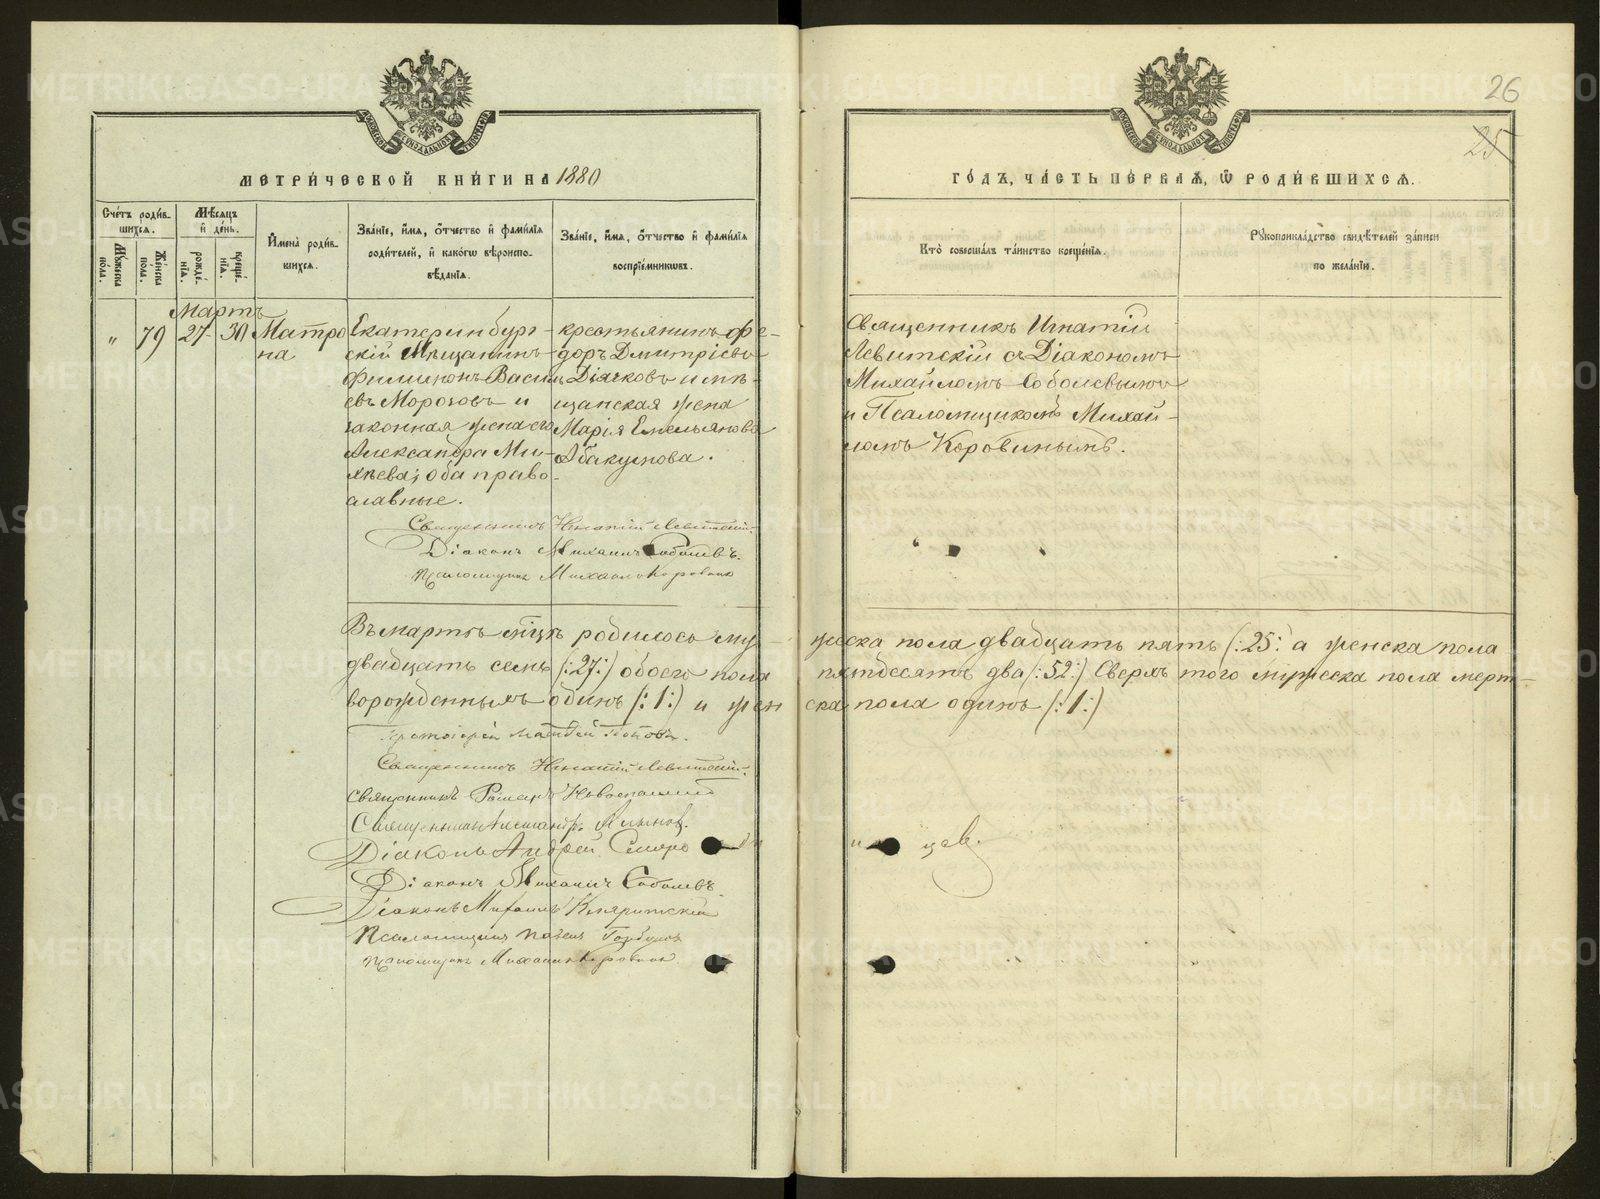 26
25
МЕТРИ́ЧЕСКОЙ КНИ́ГИ НА 1880
ГО́ДЪ, ЧА́СТЬ ПЕ́РВАѦ, Ѽ РОДИ́ВШИХСѦ.
Сче́тъ роди́в-
шихсѧ.
Мꙋ́жеска по́ла.
Же́нска по́ла.
Мѣ́сѧцъ
и҆ де́нь.
рожде́-
нїѧ.
креще́-
нїѧ.
И҆мена̀ роди́в-
шихсѧ.
Зва́нїе, и҆́мѧ, ѻ҆́тчество и҆ фами́лїѧ
роди́телей, и҆ како́гѡ вѣроиспо-
вѣ́данїѧ.
Зва́нїе, и҆́мѧ, ѻ҆́тчество и҆ фами́лїѧ
воспрїе́мникѡвъ.
Кто̀ соверша́лъ та́инство креще́нїѧ.
Рꙋкоприкла́дство свидѣ́телей за́писи
по жела́нїю.
Мартъ
" 79 27 30
Матро
на
Екатеринбург-
скій Мѣщанинъ
Филимонъ Василь
евъ Морозовъ и
законная жена его
Александра Ми-
хѣева; оба право-
славные.
крестьянинъ Фе-
доръ Дмитріевъ
Дьячковъ и мѣ-
щанская жена
Марія Емельянова
Абакумова.
Священникъ Игнатій
Левитскій съ Діакономъ
Михаиломъ Соболевымъ
и Псаломщикомъ Михаи-
ломъ Коровинымъ.
Священникъ Игнатій Левитскій.
Діаконъ Михаилъ Соболевъ.
Псаломщикъ Михаилъ Коровинъ
Въ мартѣ мѣцѣ родилось му жеска пола двадцать пять (:25: а женска пола
двадцать семь (:27:) обоего пола пятдесятъ два (:52:) Сверхъ того мужеска пола мерт-
ворожденныхъ одинъ (:1:) и жен ска пола одинъ (:1:)
Протоіерей Матвей Поповъ.
Священникъ Игнатій Левитскій.
Священникъ Романъ
Священникъ Александръ
Діаконъ Андрей
Діаконъ Михаилъ Соболевъ
Діаконъ Михаилъ
Псаломщикъ Павелъ
Псаломщикъ Михаилъ Коровинъ.
METRIKI.GASO-URAL.RU